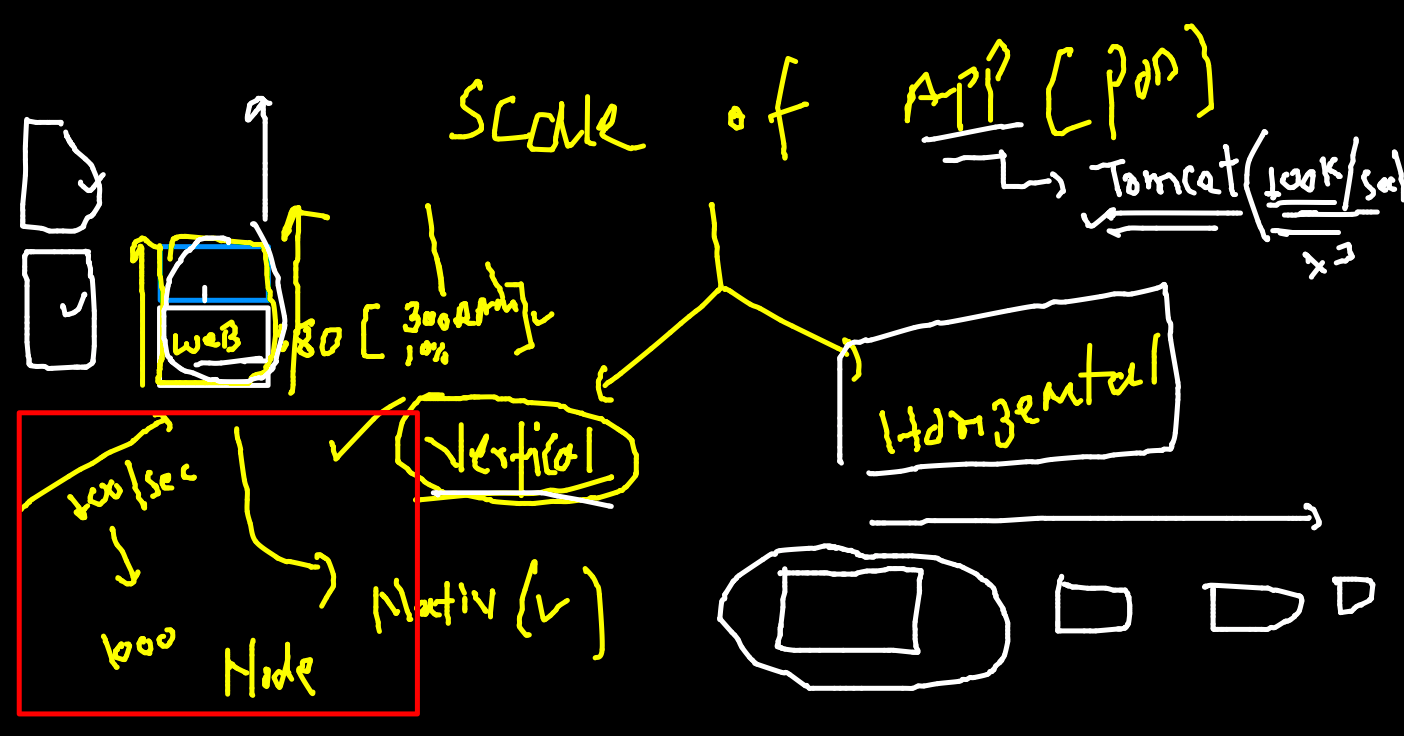 Scale of APP [POD]
Tomcat (100K/sec)
x3
WeB
:80 [300RAM
10%]
Vertical
Horizemtal
100/sec
1000
Node
Nativ (✓)